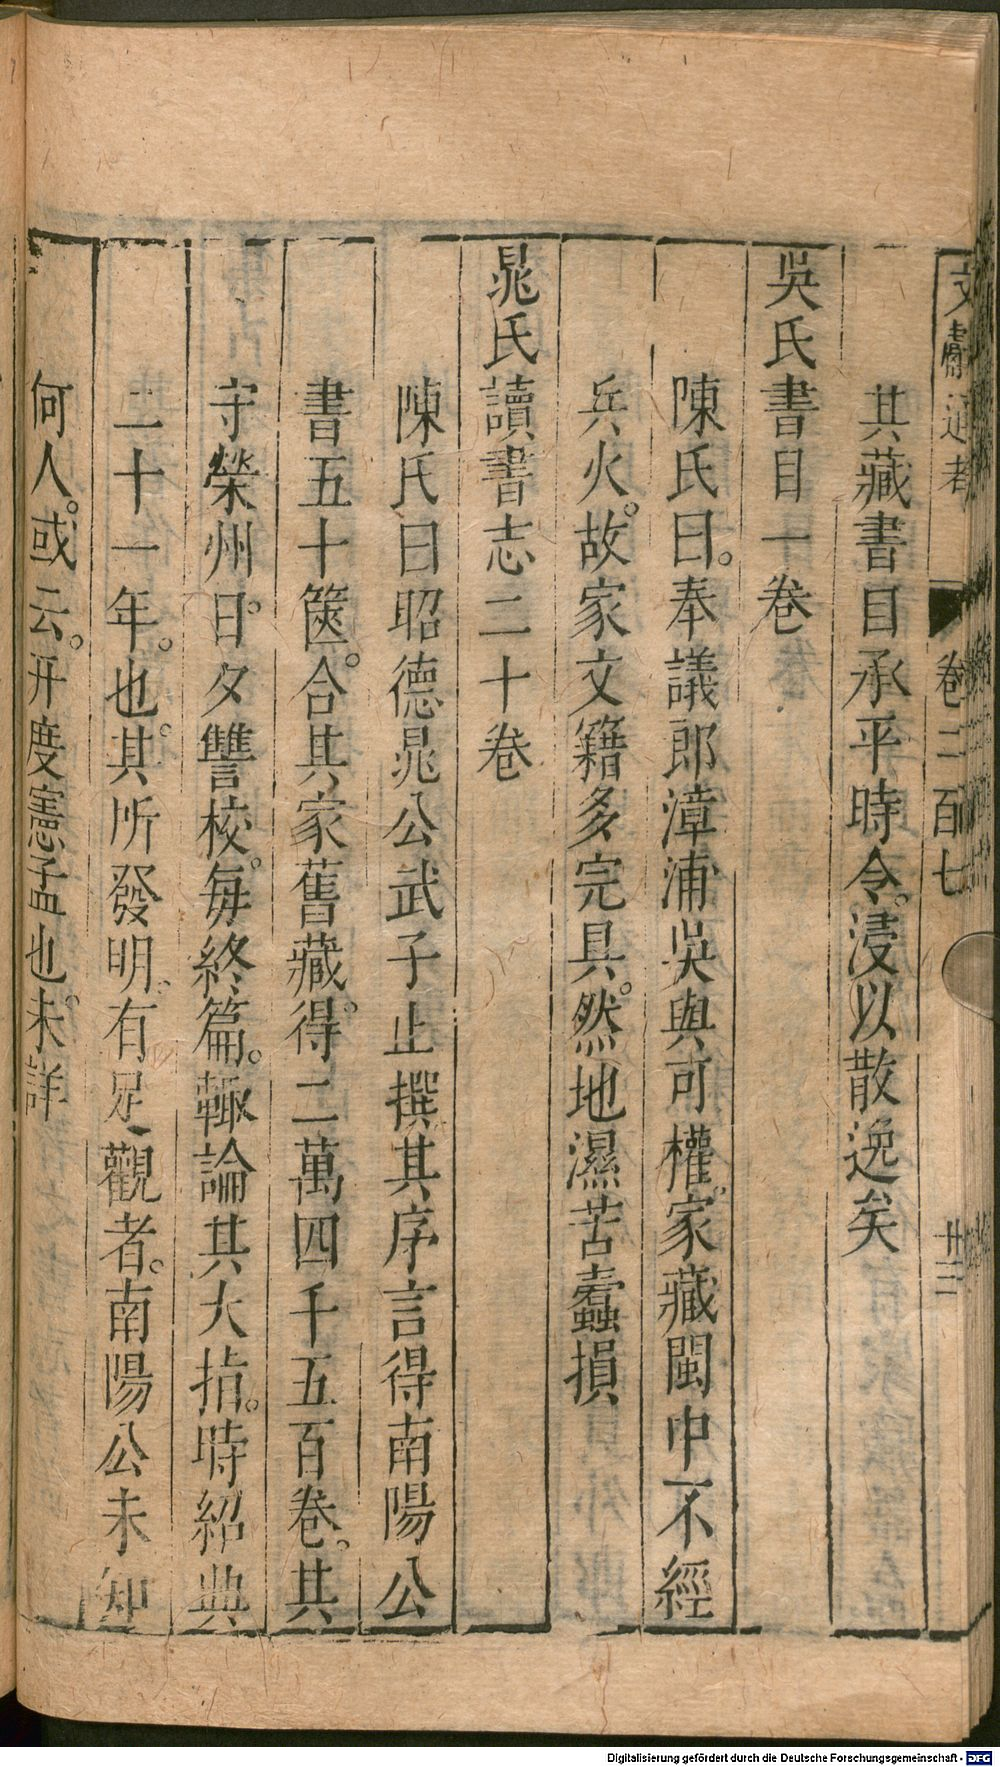 文獻通考 卷二百七 卅三
其藏書目承平時令。浸以散逸矣
吳氏書目一卷
陳氏曰。奉議郎漳浦吳與可權。家藏閩中不經
兵火。故家文籍多完具。然地濕苦蠹損
晁氏讀書志二十卷
陳氏曰昭德晁公武子止撰其序言得南陽公
書五十篋。合其家舊藏。得二萬四千五百卷。其
守榮州。日夕讐校。每終篇。輙論其大指。時紹興
二十一年。也。其所發明。有足觀者。南陽公未知
何人。或云。井度憲孟也。未詳
Digitalisierung gefördert durch die Deutsche Forschungsgemeinschaft - DFG